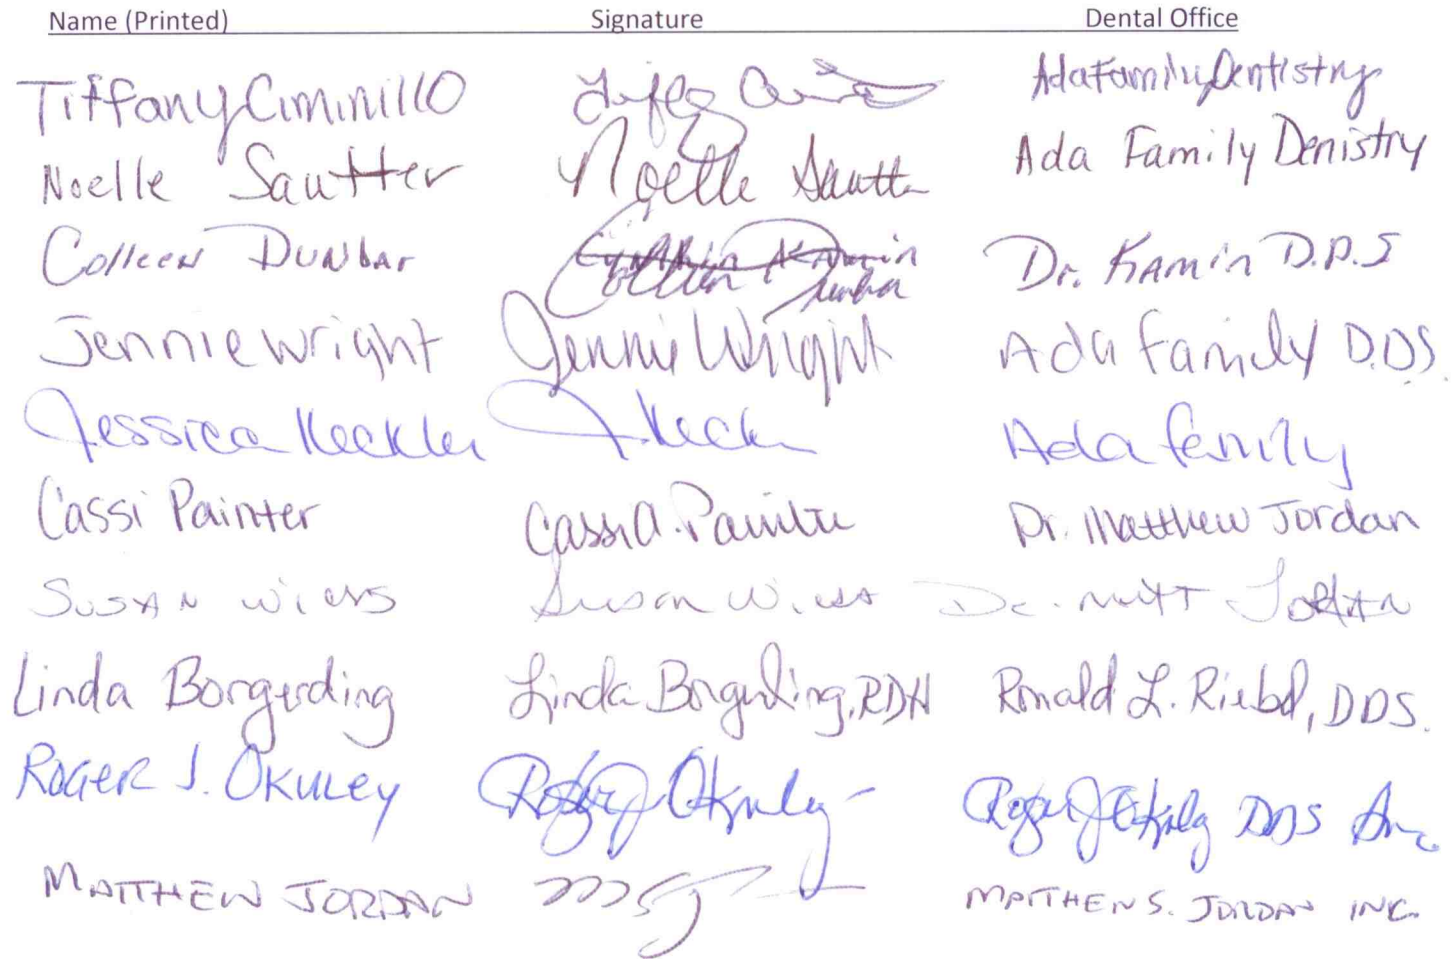 Name (Printed) Signature Dental Office
Tiffany Ciminillo Ada Family Dentistry
Noelle Sautter Noelle Sautter Ada Family Denistry
Colleen Dunbar Cynthia Kamin Colleen Dunbar Dr. Kamin D.D.S
Jennie Wright Jennie Wright Ada Family D.D.S.
Jessica Keckler J Keck Ada family
Cassi Painter Cassi A. Painter Dr. Matthew Jordan
Susan Susan Dr. Matt Jordan
Linda Borgerding Linda Borgerding, RDH Ronald L. Riebel, DDS.
Roger J. Okuley Roger J Okuley Roger J Okuley DDS Inc
Matthew Jordan Matthew S. Jordan Inc.